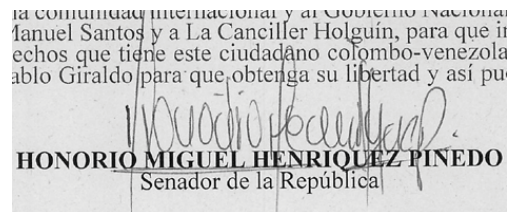 la comunidad internacional y al Gobierno Nacional
Manuel Santos y a La Canciller Holguín, para que in
echos que tiene este ciudadano colombo-venezola
ablo Giraldo para que obtenga su libertad y así pu
HONORIO MIGUEL HENRIQUEZ PINEDO
Senador de la República